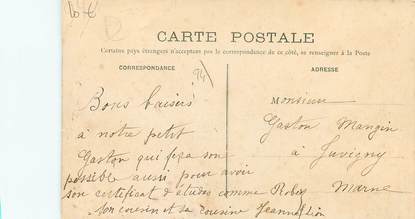 CARTE POSTALE
Certains pays étrangers n'acceptent pas la correspondance de ce côté, se renseigner à la Poste
CORRESPONDANCE
ADRESSE
Bons baisers
à notre petit
Gaston qui fera son
possible aussi pour avoir
son certificat d'études comme Robert
Son cousin et sa cousine
Monsieur
Gaston Mangin
à Juvigny
Marne